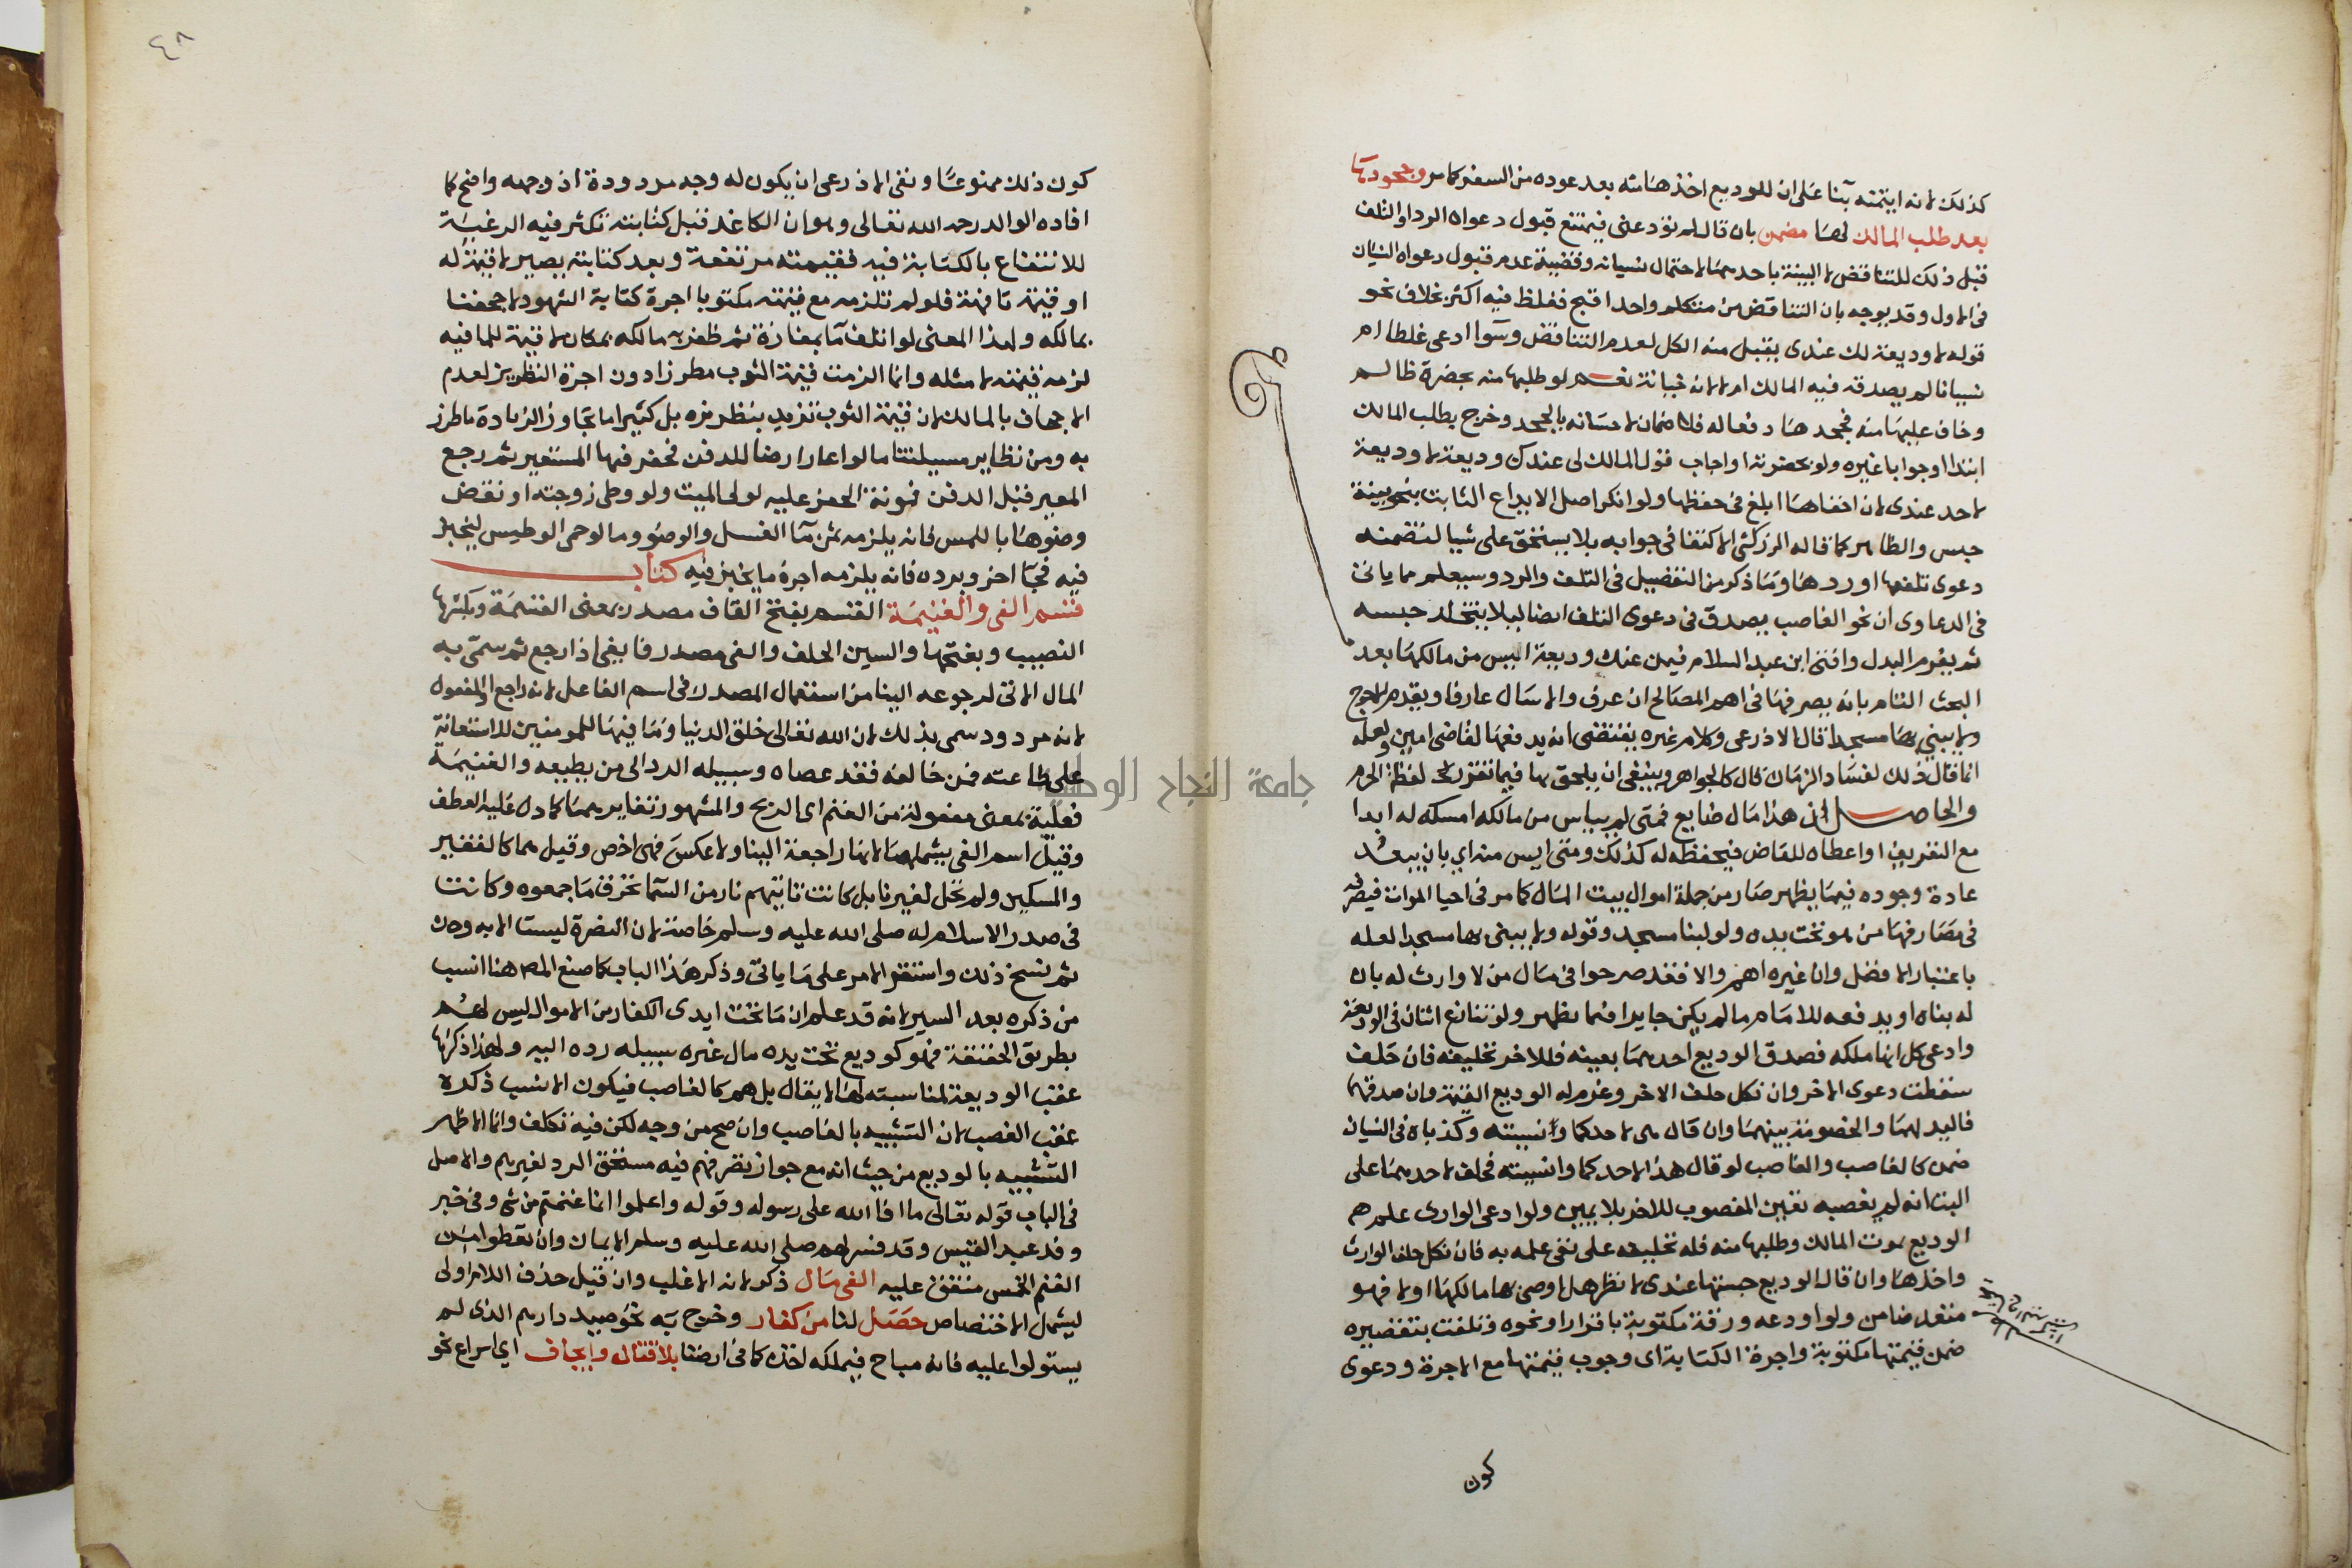 كذلك لانه ايتمنه بنا على ان للوديع اخذها منه بعد عوده من السفر كما مر وجحودها
بعد طلب المالك لها مضمن بان قال لم تودعنى فيمتنع قبول دعواه الرد او التلف
قبل ذلك للتناقض لا البينة باحدهما لاحتمال نسيانه وقضيته عدم قبول دعواه النسيان
فى الاول وقد يوجه بان التناقض من متكلم واحد اقبح فغلظ فيه اكثر بخلاف نحو
قوله لا وديعة لك عندى يقبل منه الكل لعدم التناقض وسوا ادعى غلطا ام
نسيانا لم يصدقه فيه المالك ام لا لانه خيانة نعم لو طلبها منه بحضرة ظالم
وخاف عليها منه فجحدها دفعا له فلا ضمان لاحسانه بالجحد وخرج بطلب المالك
ابتدا او جوابا غيره ولو بحضرته او اجاب قول المالك لى عندك وديعة لا وديعة
لاحد عندى لان اخفاها ابلغ فى حفظها ولو انكر اصل الايداع الثابت بنحو بينة
حبس والظاهر كما قاله الزركشى الاكتفا فى جوابه بلا يستحق على شيا لتضمنه
دعوى تلفها او ردها وما ذكر من التفصيل فى التلف والرد وسيعلم مما ياتى
فى الدعاوى ان نحو الغاصب يصدق فى دعوى التلف ايضا ليلا يتخلد حبسه
ثم يغرم البدل وافتى ابن عبد السلام فيمن عنده وديعة ايس من مالكها بعد
البحث التام بانه يصرفها فى اهم المصالح ان عرف والا سال عارفا ويقدم الاحوج
ولا يبنى بها مسجدا قال الاذرعى وكلام غيره يقتضى انه يدفعها لقاضى امين ولعله
انما قال ذلك لفساد الزمان قال كالجواهر وينبغى ان يلحق بها فيما تقرر لحد لقطة الحرم
والحاصل ان هذا مال ضايع فمتى لم يياس من مالكه امسكه له ابدا
مع التعريف او اعطاه للقاض فيحفظه له كذلك ومتى ايس منه اي بان يبعد
عادة وجوده فيما يظهر صار من جملة اموال بيت المال كما مر فى احيا الموات فيصرفه
فى مصارفها من هو تحت يده ولو لبنا مسجد وقوله ولا يبنى بها مسجدا لعله
باعتبار الافضل وان غيره اهم والا فقد صرحوا فى مال من لا وارث له بان
له بناه او يدفعه للامام ما لم يكن جايرا فيما يظهر ولو تنازع اثنان فى الوديعة
وادعى كل انها ملكه فصدق الوديع احدهما بعينه فللاخر تحليفه فان حلف
سقطت دعوى الاخر وان نكل حلف الاخر وغرم له الوديع القيمة وان صدقهما
فاليد لهما والخصومة بينهما وان قال هى لاحدكما وانسيته وكذباه فى النسيان
ضمن كالغاصب والغاصب لو قال هذا لاحدكما وانسيته فحلف لاحدهما على
البت انه لم يغصبه تعين المغصوب للاخر بلا يمين ولو ادعى الوارث علم
الوديع بموت المالك وطلبها منه فله تحليفه على نفى علمه به فان نكل حلف الوارث
واخذها وان قال الوديع حبستها عندى لانظر هل اوصى بها مالكها او لا فهو
متعد ضامن ولو اودعه ورقة مكتوبة باقرار او نحوه وتلفت بتقصيره
ضمن قيمتها مكتوبة واجرة الكتابة اى وجوب قيمتها مع الاجرة ودعوى
كون
٤٨
كون ذلك ممنوعا ونفى الاذرعى ان يكون له وجه مردودة اذ وجهه واضح كما
افاده الوالد رحمه الله تعالى وهو ان الكاغد قبل كتابته تكثر فيه الرغبة
للانتفاع بالكتابة فيه فقيمته مرتفعة وبعد كتابته يصير لا قيمة له
او قيمة تافهة فلو لم تلزمه مع قيمته مكتوبا اجرة كتابة الشهود لاجحفنا
بمالكه ولهذا المعنى لو اتلف ما بمفازة ثم ظفر به مالكه بمكان لا قيمة للما فيه
لزمه قيمته لا مثله وانما الزمت قيمة الثوب مطرزا دون اجرة التطريز لعدم
الاجحاف بالمالك لان قيمة الثوب تزيد بتطريزه بل كثيرا ما تجاوز الزيادة ما طرز
به ومن نظاير مسيلتنا ما لو اعار ارضا للدفن فحفر فيها المستعير ثم رجع
المعير قبل الدفن فمونة الحفر عليه لولى الميت ولو وطى زوجته او نقض
وضوها باللمس فانه يلزمه ثمن ما الغسل والوضو وما لو حمى الوطيس ليخبز
فيه فجا اخر وبرده فانه يلزمه اجرة ما يخبز فيه كتاب
قسم الفى والغنيمة القسم بفتح القاف مصدر بمعنى القسمة وبكسرها
النصيب وبفتحها والسين الحلف والفى مصدر فا يفى اذا رجع ثم سمى به
المال الاتى لرجوعه الينا من استعمال المصدر فى اسم الفاعل لانه راجع او المفعول
لانه مردود سمى بذلك لان الله تعالى خلق الدنيا وما فيها للمومنين للاستعانة
على طاعته فمن خالفه فقد عصاه وسبيله الرد الى من يطيعه والغنيمة
فعلية بمعنى مفعولة من الغنم اى الربح والمشهور تغايرهما كما دل عليه العطف
وقيل اسم الفى يشملهما لانها راجعة الينا ولا عكس فهى اخص وقيل هما كالفقير
والمسكين ولم تحل لغيرنا بل كانت تاتيهم نار من السما تحرق ما جمعوه وكانت
فى صدر الاسلام له صلى الله عليه وسلم خاصة لان النصرة ليست الا به وحده
ثم نسخ ذلك واستقر الامر على ما ياتى وذكر هذا الباب كما صنع المص هنا انسب
من ذكره بعد السير لانه قد علم ان ما تحت ايدى الكفار من الاموال ليس لهم
بطريق الحقيقة فهو كوديع تحت يده مال غيره سبيله رده اليه ولهذا ذكرها
عقب الوديعة لمناسبته لها لا يقال بل هم كالغاصب فيكون الانسب ذكره
عقب الغصب لان التشبيه بالغاصب وان صح من وجه لكن فيه تكلف وانما الاظهر
التشبيه بالوديع من حيث انه مع جواز تصرفهم فيه مستحق الرد لغيرهم والاصل
فى الباب قوله تعالى ما افا الله على رسوله وقوله واعلموا انما غنمتم من شى وفى خبر
وفد عبد القيس وقد فسر لهم صلى الله عليه وسلم الايمان وان تعطوا من
الغنم الخمس متفق عليه الفى مال ذكر لانه الاغلب وان قيل حذف اللام اولى
ليشمل الاختصاص حصل لنا من كفار وخرج به نحو صيد دارهم الذى لم
يستولوا عليه فانه مباح فيملكه اخذه كما فى ارضنا بلا قتال وايجاف اي اسراع نحو
جامعة النجاح الوطنية